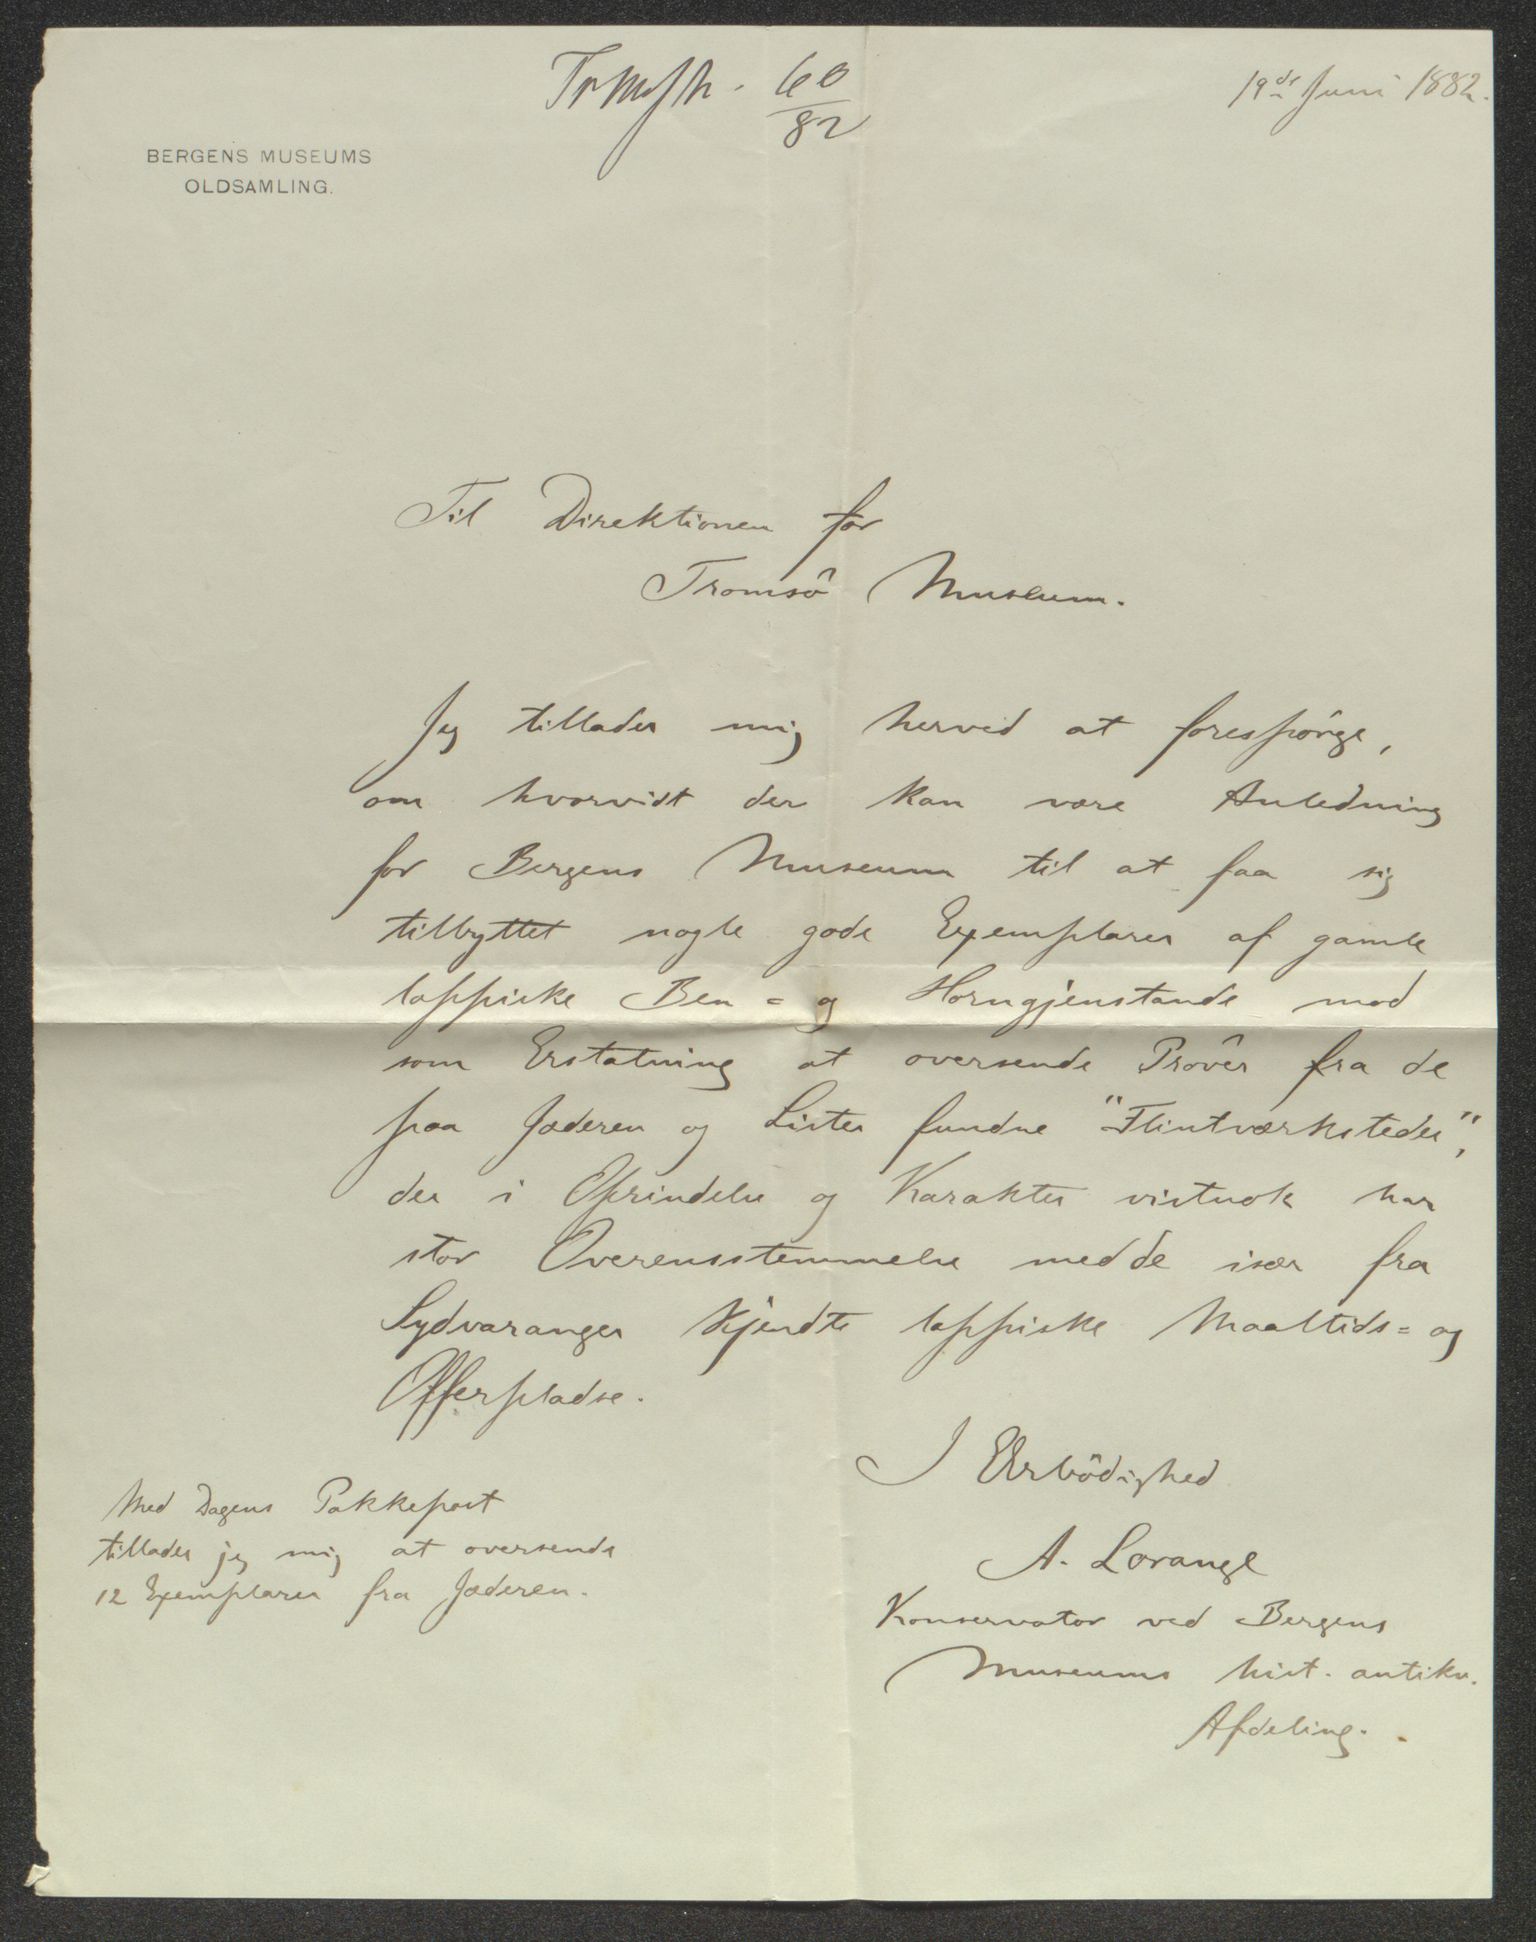 60
82
19de Juni 1882.
BERGENS MUSEUMS
OLDSAMLING.
Til Direktionen for
Tromsö Museum.
Jeg tillader mig herved at forespörge,
om hvorvidt der kan være Anledning
for Bergens Museum til at faa sig
tilbyttet nogle gode Exemplarer af gamle
lappiske Ben- og Horngjenstande mod
som Erstatning at oversende Pröver fra de
paa Jæderen og Lister fundne "Flintværksteder",
der i Oprindelse og Karakter vistnok har
stor Overensstemmelse med de især fra
Sydvaranger kjendte lappiske Maaltids- og
Offerpladse.
I Ærbödighed
A. Lorange
Konservator ved Bergens
Museums hist. antikv.
Afdeling.
Med Dagens Pakkepost
tillader jeg mig at oversende
12 Exemplarer fra Jæderen.